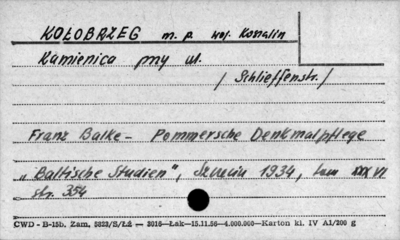 KOŁOBRZEG m. p. woj. Koszalin
Kamienica przy ul.
/Schlieffenstr./
Franz Balke - Pommersche Denkmalpflege
„Baltische Studien", Szczecin 1934, tom XXXVI
str. 354
CWD - B-15b. Zam. 5823/S/Łż — 2016—Łak—15.11.56—4.000.000—Karton kl. IV A1/200 g